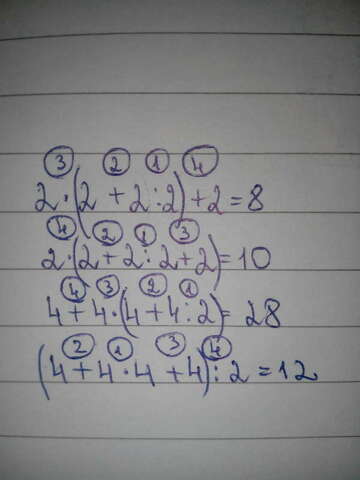 3 2 1 4
2·(2 + 2:2)+2=8
4 2 1 3
2·(2+2:2+2)=10
4 3 2 1
4+4·(4+4:2)=28
2 1 3 4
(4+4·4+4):2=12